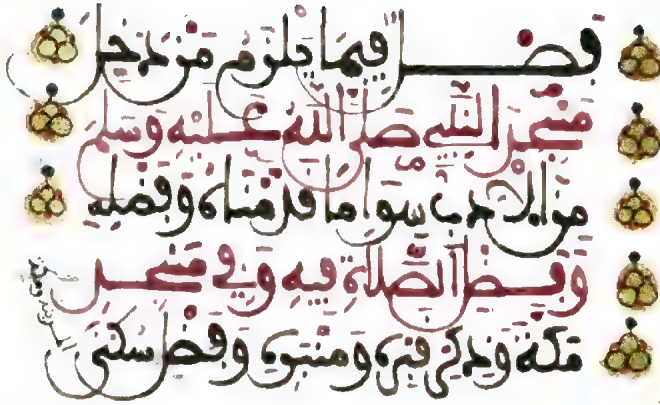 فصل فيما يلزم من دخل
مسجد النبي صلى الله عليه وسلم
من الادب سوا ما قدمناه وفضله
وفضل الصلاة فيه وفي مسجد
مكة وذكر قبره ومنبره وفضل سكنى